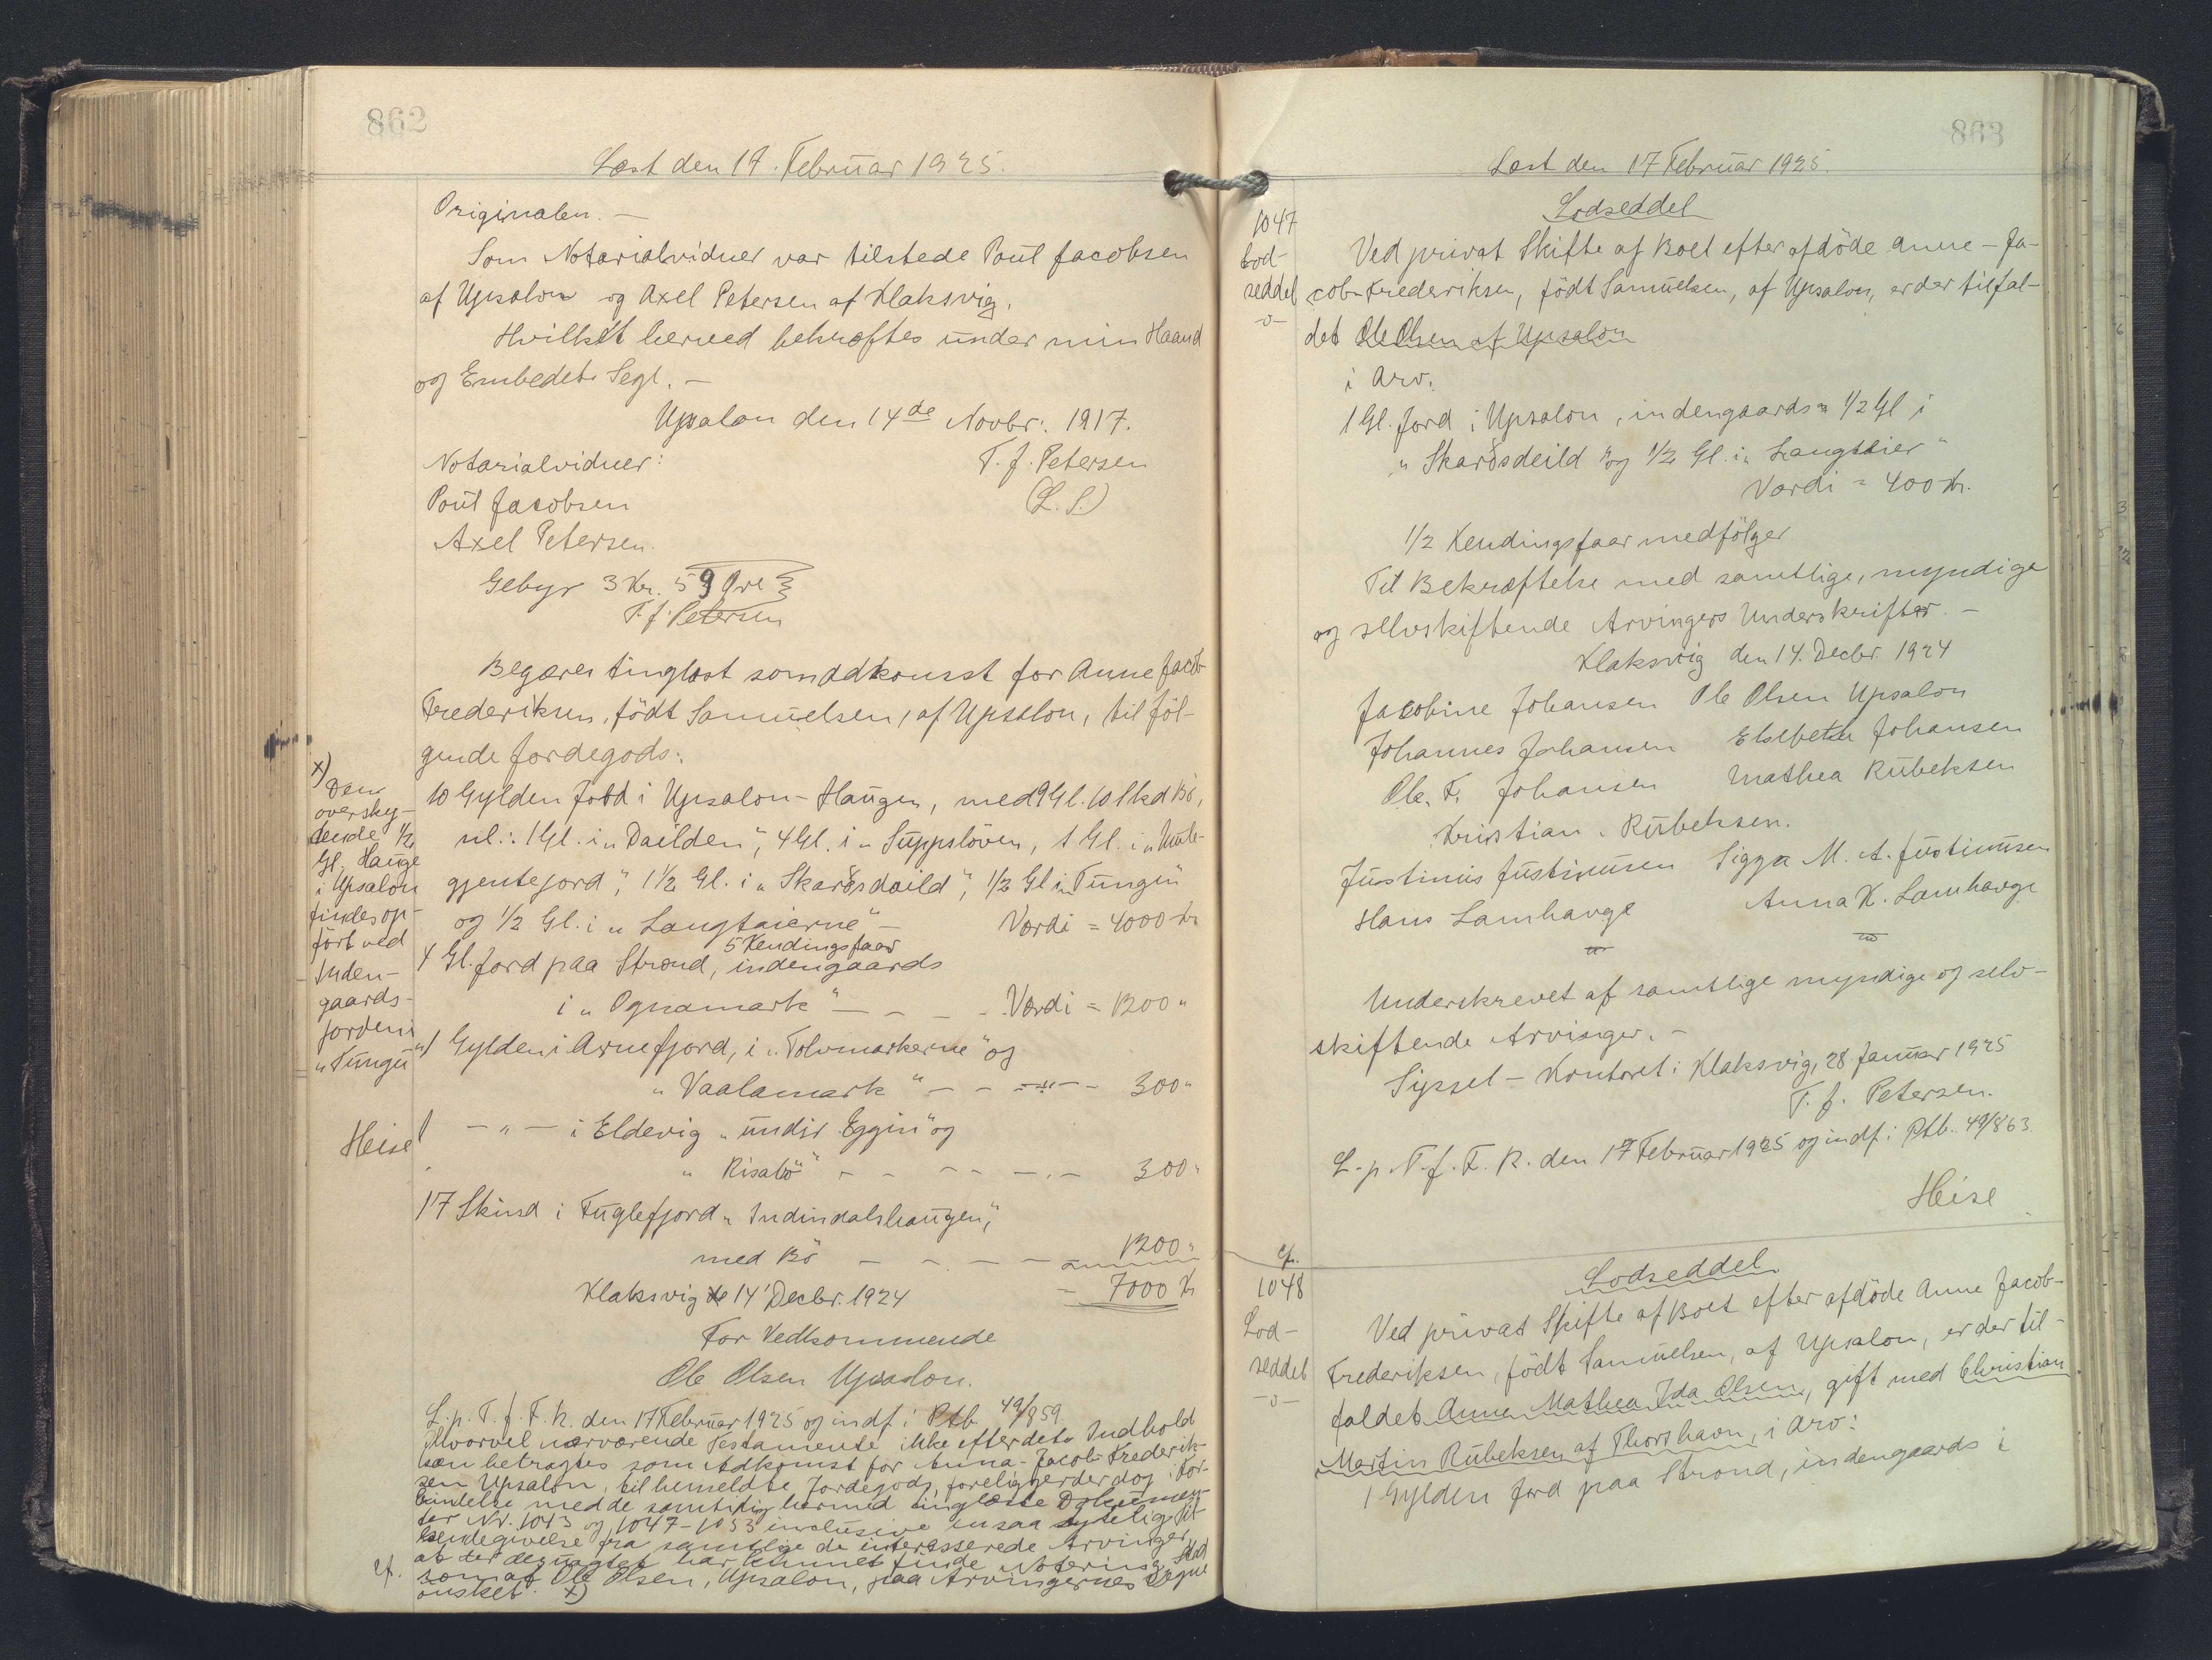 862
Læst den 17. Februar 1925.
Originalen. —
Som Notarialvidner var tilstede Poul Jacobsen
af Upsalon og Axel Petersen af Klaksvig.
Hvilket herved bekræftes under min Haand
og Embedets Segl. —
Upsalon den 14de Novbr. 1917.
Notarialvidner: T. J. Petersen
Poul Jacobsen (L. S.)
Axel Petersen.
Gebyr 3 Kr. 59 Øre
T. J. Petersen
Begæres tinglæst som Adkomst for Anne Jacob-
Frederiksen, födt Samuelsen, af Upsalon, til föl-
gende Jordegods:
10 Gylden Jord i Upsalon-Haugen, med 9 Gl. 10 Skd Bö,
nl.: 1 Gl. i „Dailden", 4 Gl. i „Suppslöven, 1 Gl. i „Mule-
gjentejord", 1½ Gl. i „Skarðsdaild", ½ Gl i „Tungu"
og ½ Gl. i „Langtaierne" — Værdi = 4000 Kr
5 Kendingsfaar
4 Gl. Jord paa Strond, indengaards
i „Ognamark" — — — — Værdi = 1200 "
1 Gylden i Arnefjord, i „Tolvmarkerne" og
„Vaalamark" — — — " — — 300 "
1 — " — i Eldevig „undir Eggin" og
„Risabö" — — — — — 300 "
17 Skind i Fuglefjord „Indindalshaugen",
med Bö — — — — — 1200 "
Klaksvig de 14' Decbr. 1924 = 7000 Kr
For Vedkommende
Ole Olsen Upsalon.
L. p. T. f. F. R. den 17 Februar 1925 og indf. i Ptb 49/859
Hvorvel nærværende Testamente ikke efter dets Indhold
kan betragtes som Adkomst for Anna-Jacob Frederik-
sen Upsalon, til bemeldte Jordegods, foreligger der dog i For-
bindelse med de samtidig hermed tinglæste Dokumen-
ter Nr. 1043 og 1047-1053 inclusive en saa tydelig Til-
kendegivelse fra samtlige de interesserede Arvinger,
at der desuagtet har kunnet finde Notering Sted
som af Ole Olsen, Upsalon, paa Arvingernes Vegne
önsket. x)
cf.
x)
Den
oversky-
dende ½
Gl. Hauge
i Upsalon
findes op-
fört ved
Inden-
gaards-
jorden i
„Tungu"
Heise
863
Læst den 17 Februar 1925.
Lodseddel
1047
Lod-
seddel
-o-
Ved privat Skifte af Boet efter afdöde Anne-Ja-
cob-Frederiksen, födt Samuelsen, af Upsalon, er der tilfal-
det Ole Olsen af Upsalon
i Arv:
1 Gl. Jord i Upsalon, indengaards = ½ Gl i
„Skarðsdeild" og ½ Gl. i „Langteier"
Værdi = 400 Kr.
½ Kendingsfaar medfölger
Til Bekræftelse med samtlige, myndige
og selvskiftende Arvingers Underskrifter. —
Klaksvig den 14. Decbr. 1924
Jacobine Johansen Ole Olsen Upsalon
Johannes Johansen Elsebeth Johansen
Ole. F. Johansen Mathea Rubeksen
Kristian. Rubeksen.
Justinus Justinusen Sigga M. A. Justinusen
Hans Lamhauge Anna K. Lamhauge
Underskrevet af samtlige myndige og selv-
skiftende Arvinger. —
Syssel-Kontoret i Klaksvig, 28. Januar 1925
T. J. Petersen.
L. p. T. f. F. R. den 17 Februar 1925 og indf. i Ptb. 49/863.
Heise
cf.
1048
Lod-
seddel
-o-
Lodseddel
Ved privat Skifte af Boet efter afdöde Anne Jacob-
Frederiksen, födt Samuelsen, af Upsalon, er der til-
faldet Anne Mathea Ida Olsen, gift med Christian
Martin Rubeksen af Thorshavn, i Arv:
1 Gylden Jord paa Strond, indengaards i